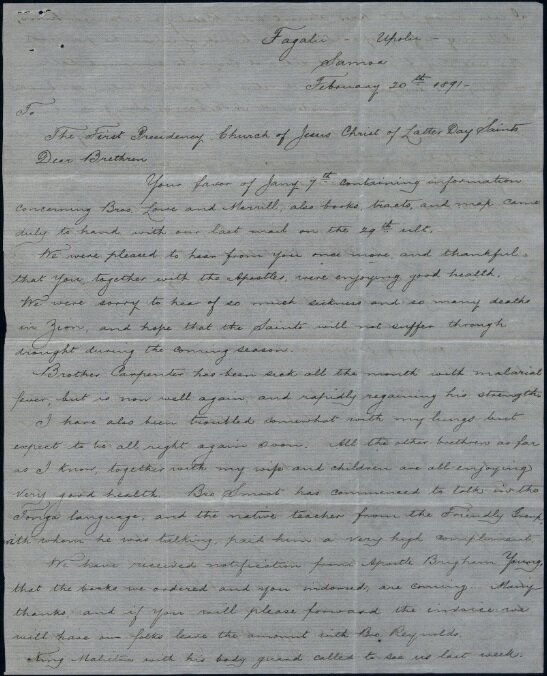 Fagalii - Upolu -
Samoa
February 20th 1891-
To
The First Presidency Church of Jesus Christ of Latter Day Saints
Dear Brethren
Your favor of Jany 7th containing information
concerning Bros. Lowe and Merrill, also books, tracts, and map came
duly to hand with our last mail on the 29th ult.
We were pleased to hear from you once more, and thankful
that you, together with the Apostles, were enjoying good health.
We were sorry to hear of so much sickness and so many deaths
in Zion, and hope that the Saints will not suffer through
drought during the coming season.
Brother Carpenter has been sick all the month with malarial
fever, but is now well again, and rapidly regaining his strength.
I have also been troubled somewhat with my lungs but
expect to be all right again soon. All the other brethren as far
as I know, together with my wife and children are all enjoying
very good health. Bro Smoot has commenced to talk in the
Tonga language, and the native teacher from the Friendly Group,
with whom he was talking, paid him a very high compliment.
We have received notification from Apostle Brigham Young,
that the books we ordered and you indorsed, are coming. Many
thanks and if you will please forward the invoice we
will have our folks leave the amount with Bro. Reynolds.
King Malietoa with his body guard called to see us last week.